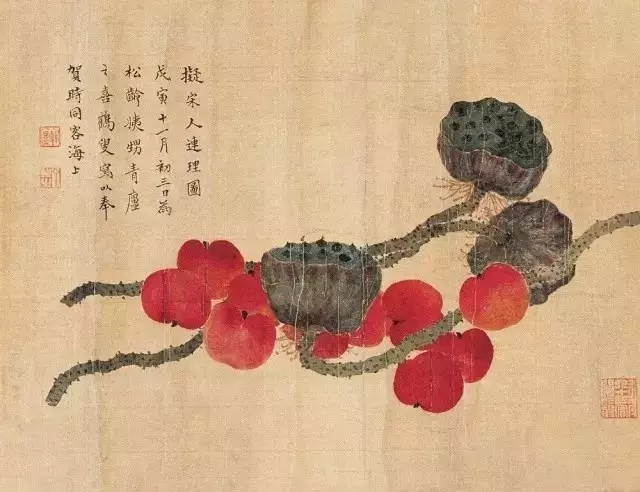 擬宋人連理圖
戊寅十一月初三日為
松齡姨甥青廬
之喜鶴叟寫以奉
賀時同客海上